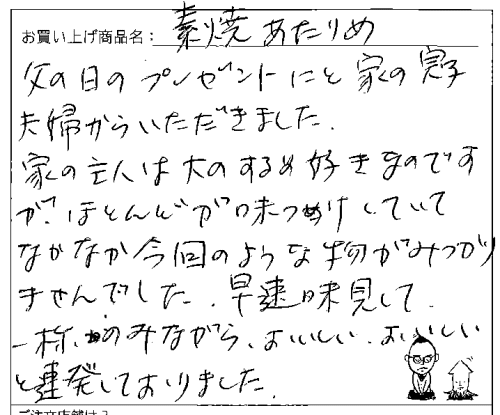 お買い上げ商品名: 素焼あたりめ
父の日のプレゼントにと家の息子
夫婦からいただきました.
家の主人は大のするめ好きなのです
が、ほとんどが味つけしていて
なかなか今回のような物がみつかり
ませんでした. 早速味見して.
一杯、のみながら、おいしい、おいしい
と連発しておりました.